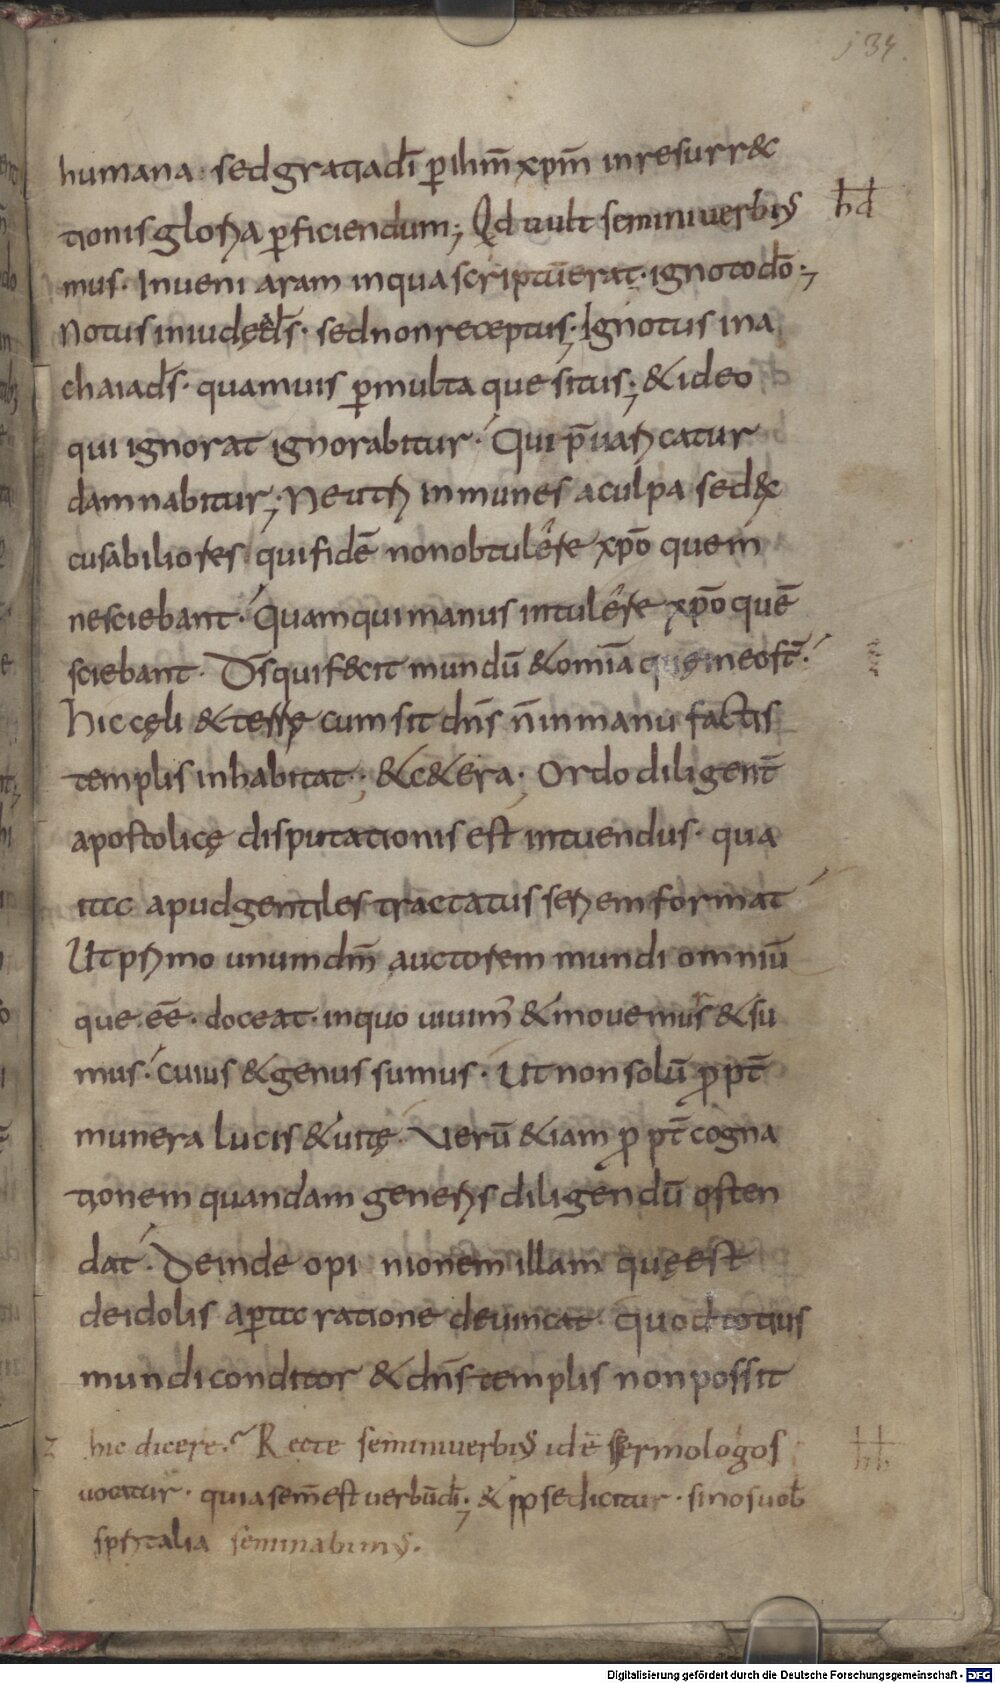 134.
humana. sed gratia dī p ihm̄ xpm̄ in resurr&
tionis gloria pficiendum; Qd uult seminiuerbiꝰ hd
mus. Inueni aram in qua scriptū erat. ignoto dō;
Notus in iudęa ds̄. sed non receptus; Ignotus in a
chaia ds̄. quamuis p multa quesitus; & ideo
qui ignorat ignorabitur. Qui p̄uaricatur
damnabitur; Neutri inmunes a culpa sed &
cusabiliores qui fidē non obtulere xpō quem
nesciebant. Quam qui manus intulere xpō quē
sciebant. Ds̄ qui fecit mundū & omīa quę in eo st̄.
hic cęli & terrę cum sit dn̄s n̄ in manu factis
templis inhabitat; & c&era; Ordo diligent̄
apostolicę disputationis est intuendus. qua
itcc apud gentiles tractatus seriem format
Ut primo unum dm̄ auctorem mundi omniū
que ēē. doceat. in quo uiuimꝰ & mouemur & su
mus. cuius & genus sumus. Ut non solū ppt̄
munera lucis & uitę. Uerū &iam p pt̄ cogna
tionem quandam generis diligendū osten
dat. Deinde opi nionem illam quę est
de idolis apttc ratione deuincat. quod totius
mundi conditor & dn̄s templis non possit
hic dicere. Recte seminiuerbiꝰ idē spermologos hh
uocatur. quia sem̄ est uerbū dī; & ipse dicitur. si nos uob̄
spiritalia seminabimꝰ.
Digitalisierung gefördert durch die Deutsche Forschungsgemeinschaft - DFG